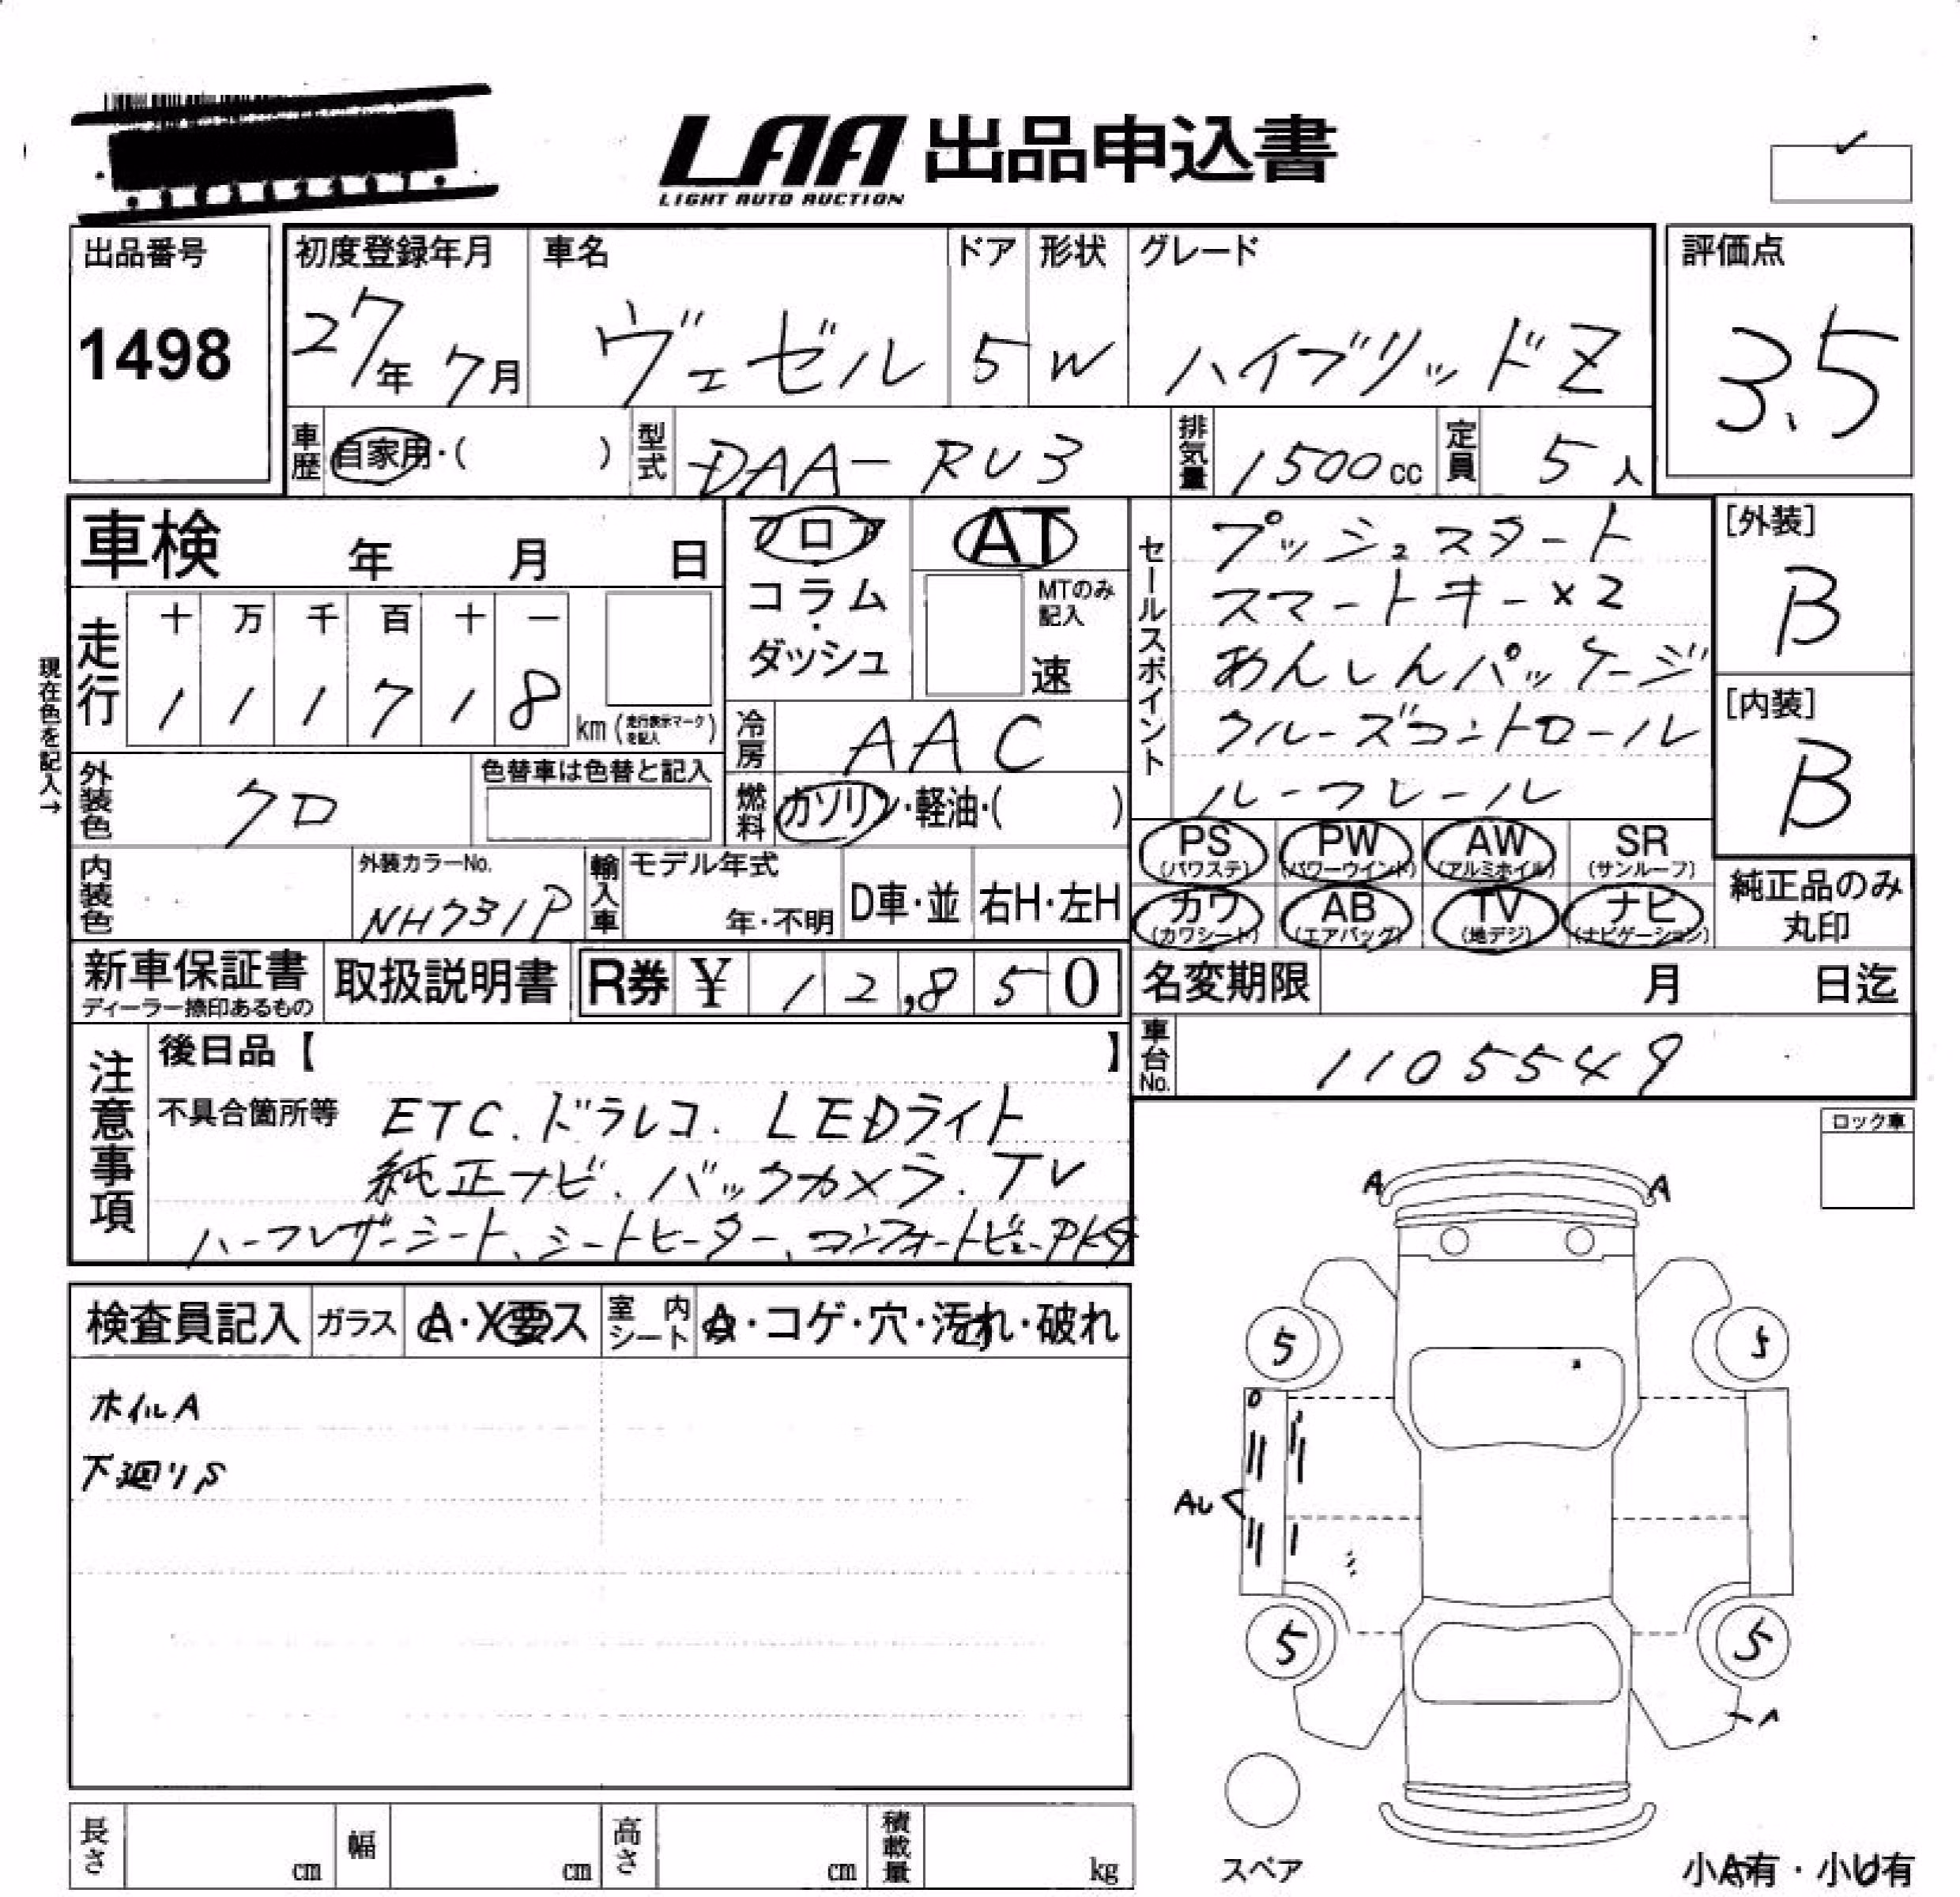 LAA 出品申込書
LIGHT AUTO AUCTION
出品番号
1498
初度登録年月
27年 7月
車名
ヴェゼル
ドア
5
形状
W
グレード
ハイブリッドZ
評価点
3.5
車歴
自家用・( )
型式
DAA-RU3
排気量
1500cc
定員
5人
車検 年 月 日
フロア・コラム・ダッシュ
AT
MTのみ記入
速
セールスポイント
プッシュスタート
スマートキー×2
あんしんパッケージ
クルーズコントロール
ルーフレール
[外装]
B
[内装]
B
現在色を記入→
走行
十 万 千 百 十 一
1 1 1 7 1 8 km (走行表示マークを記入)
冷房
AAC
外装色
クロ
色替車は色替と記入
燃料
ガソリン・軽油・( )
PS (パワステ)
PW (パワーウインド)
AW (アルミホイル)
SR (サンルーフ)
カワ (カワシート)
AB (エアバッグ)
TV (地デジ)
ナビ (ナビゲーション)
純正品のみ丸印
内装色
外装カラーNo.
NH731P
輸入車
モデル年式
年・不明
D車・並
右H・左H
新車保証書
ディーラー捺印あるもの
取扱説明書
R券 ¥ 12,850
名変期限 月 日迄
車台No.
1105549
注意事項
後日品【 】
不具合箇所等
ETC.ドラレコ.LEDライト
純正ナビ、バックカメラ.TV
ハーフレザーシート、シートヒーター、コンフォートビューPKG
ロック車
検査員記入
ガラス
A・X要ス
室内シート
A・コゲ・穴・汚れ・破れ
ホイルA
下廻りS
A A
5 5
AU
5 5
A
スペア
長さ cm
幅 cm
高さ cm
積載量 kg
小A有・小U有